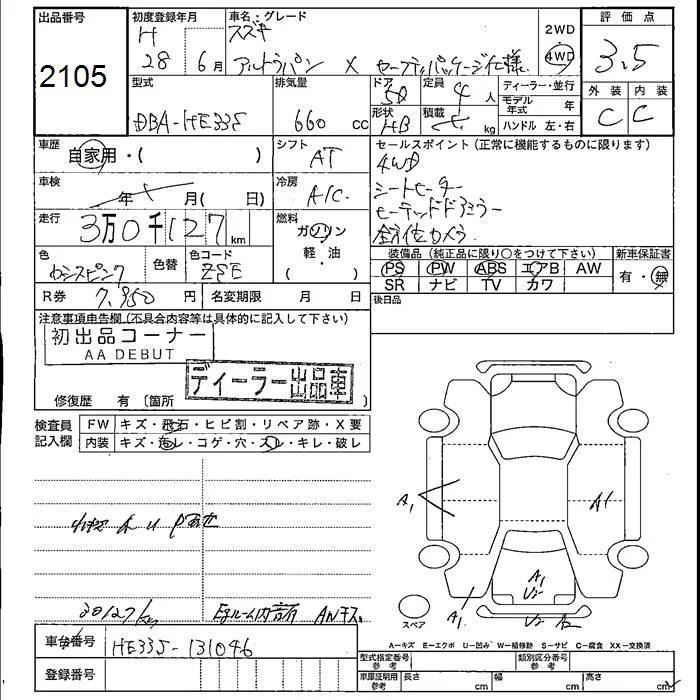 出品番号
2105
初度登録年月
H
28 6月
車名・グレード
スズキ
アルトラパン X セーフティパッケージ仕様
2WD
4WD
評価点
3.5
外装 内装
C C
型式
DBA-HE33S
排気量
660 cc
ドア
5D
定員
4人
形状
HB
積載
kg
ディーラー・並行
モデル年式 年
ハンドル 左・右
車歴
自家用・( )
シフト
AT
セールスポイント(正常に機能するものに限ります)
4WD
シートヒーター
ヒーテッドドアミラー
全方位カメラ
車検
年 月( 日)
冷房
A/C
走行
3万0千127km
燃料
ガソリン
軽・油
( )
色
色替
色コード
ZSE
装備品(純正品に限り○をつけて下さい)
PS PW ABS エアB AW
SR ナビ TV カワ
新車保証書
有・無
R券 7,950円
名変期限 月 日
後日品
注意事項申告欄(不具合内容等は具体的に記入して下さい)
初出品コーナー
AA DEBUT
ディーラー出品車
修復歴 有 〔箇所
検査員記入欄
FW キズ・飛石・ヒビ割・リペア跡・X要
内装 キズ・汚レ・コゲ・穴・スレ・キレ・破レ
A1
A1
A1
A1
スペア
30127km
車台番号
HE33S-131046
登録番号
A-キズ E-エクボ U-凹み W-補修跡 S-サビ C-腐食 XX-交換済
型式指定番号 参考
類別区分番号 参考
車庫証明用 参考
長さ cm
幅 cm
高さ cm